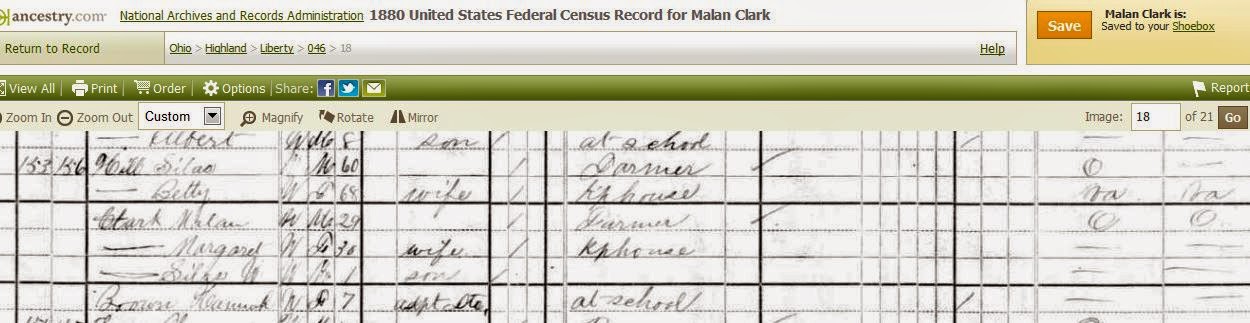 ancestry.com National Archives and Records Administration 1880 United States Federal Census Record for Malan Clark
Malan Clark is:
Save Saved to your Shoebox
Return to Record Ohio > Highland > Liberty > 046 > 18 Help
View All Print Order Options Share: Report
Zoom In Zoom Out Custom Magnify Rotate Mirror Image: 18 of 21 Go
— Albert W M 8 son / at school / — —
153 156 Hill Silas M 60 / Farmer O —
— Betty W F 68 wife / Kphouse Va Va
Clark Malan W M 29 / Farmer O O
— Margaret W F 30 wife / Kphouse — —
— Silas W W M 1 son / — —
Brown Hannah W F 7 adpt dto. at school / — —